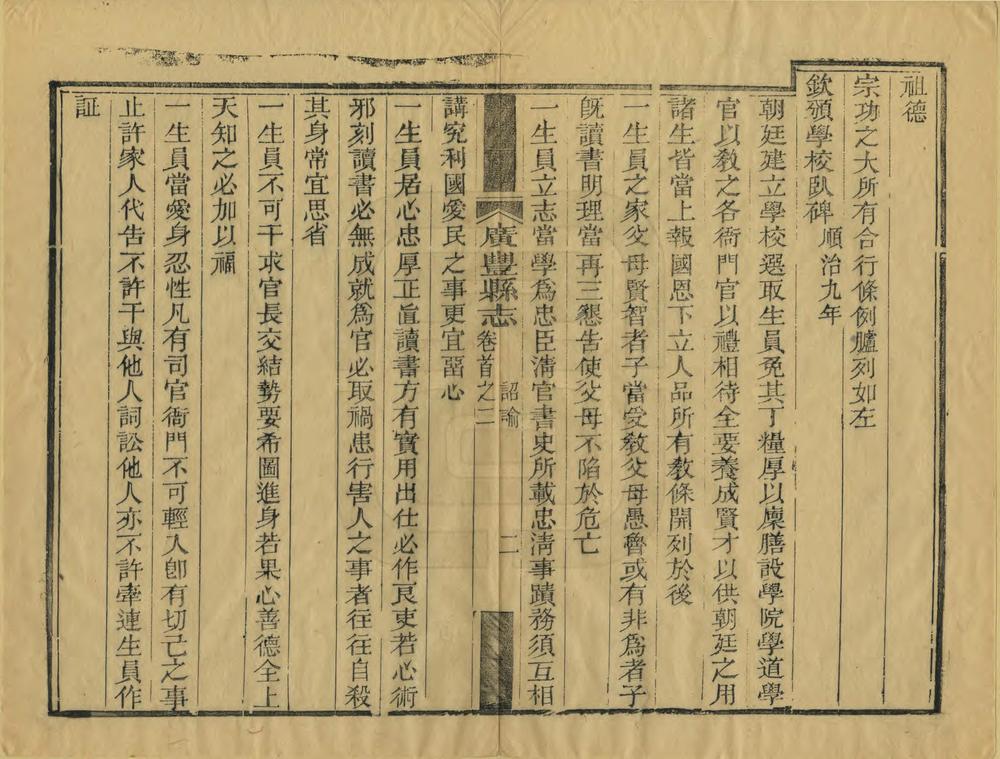 祖德
宗功之大所有合行條例臚列如左
欽頒學校臥碑 順治九年
朝廷建立學校選取生員免其丁糧厚以廩膳設學院學道學
官以敎之各衙門官以禮相待全要養成賢才以供朝廷之用
諸生皆當上報國恩下立人品所有敎條開列於後
一生員之家父母賢智者子當受敎父母愚魯或有非爲者子
旣讀書明理當再三懇告使父母不陷於危亡
一生員立志當學爲忠臣淸官書史所載忠淸事蹟務須互相
廣豐縣志 卷首之二 詔諭 二
講究利國愛民之事更宜畱心
一生員居心忠厚正直讀書方有實用出仕必作良吏若心術
邪刻讀書必無成就爲官必取禍患行害人之事者往往自殺
其身常宜思省
一生員不可干求官長交結勢要希圖進身若果心善德全上
天知之必加以福
一生員當愛身忍性凡有司官衙門不可輕入卽有切己之事
止許家人代告不許干與他人詞訟他人亦不許牽連生員作
証